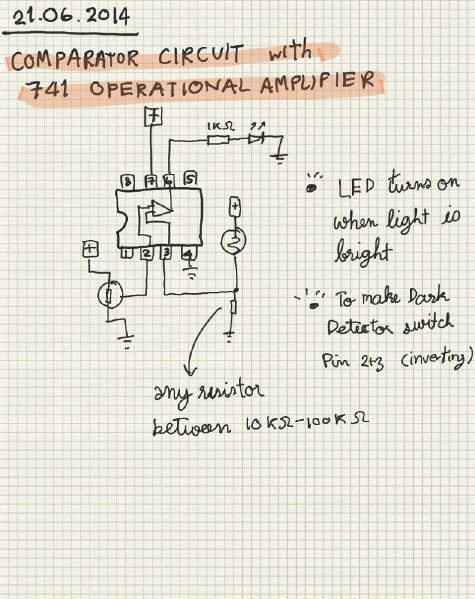 21.06.2014
COMPARATOR CIRCUIT with
741 OPERATIONAL AMPLIFIER
+
1KΩ
8 7 6 5
+
+
1 2 3 4
LED turns on
when light is
bright
To make Dark
Detector switch
Pin 2+3 (inverting)
any resistor
between 10KΩ-100KΩ